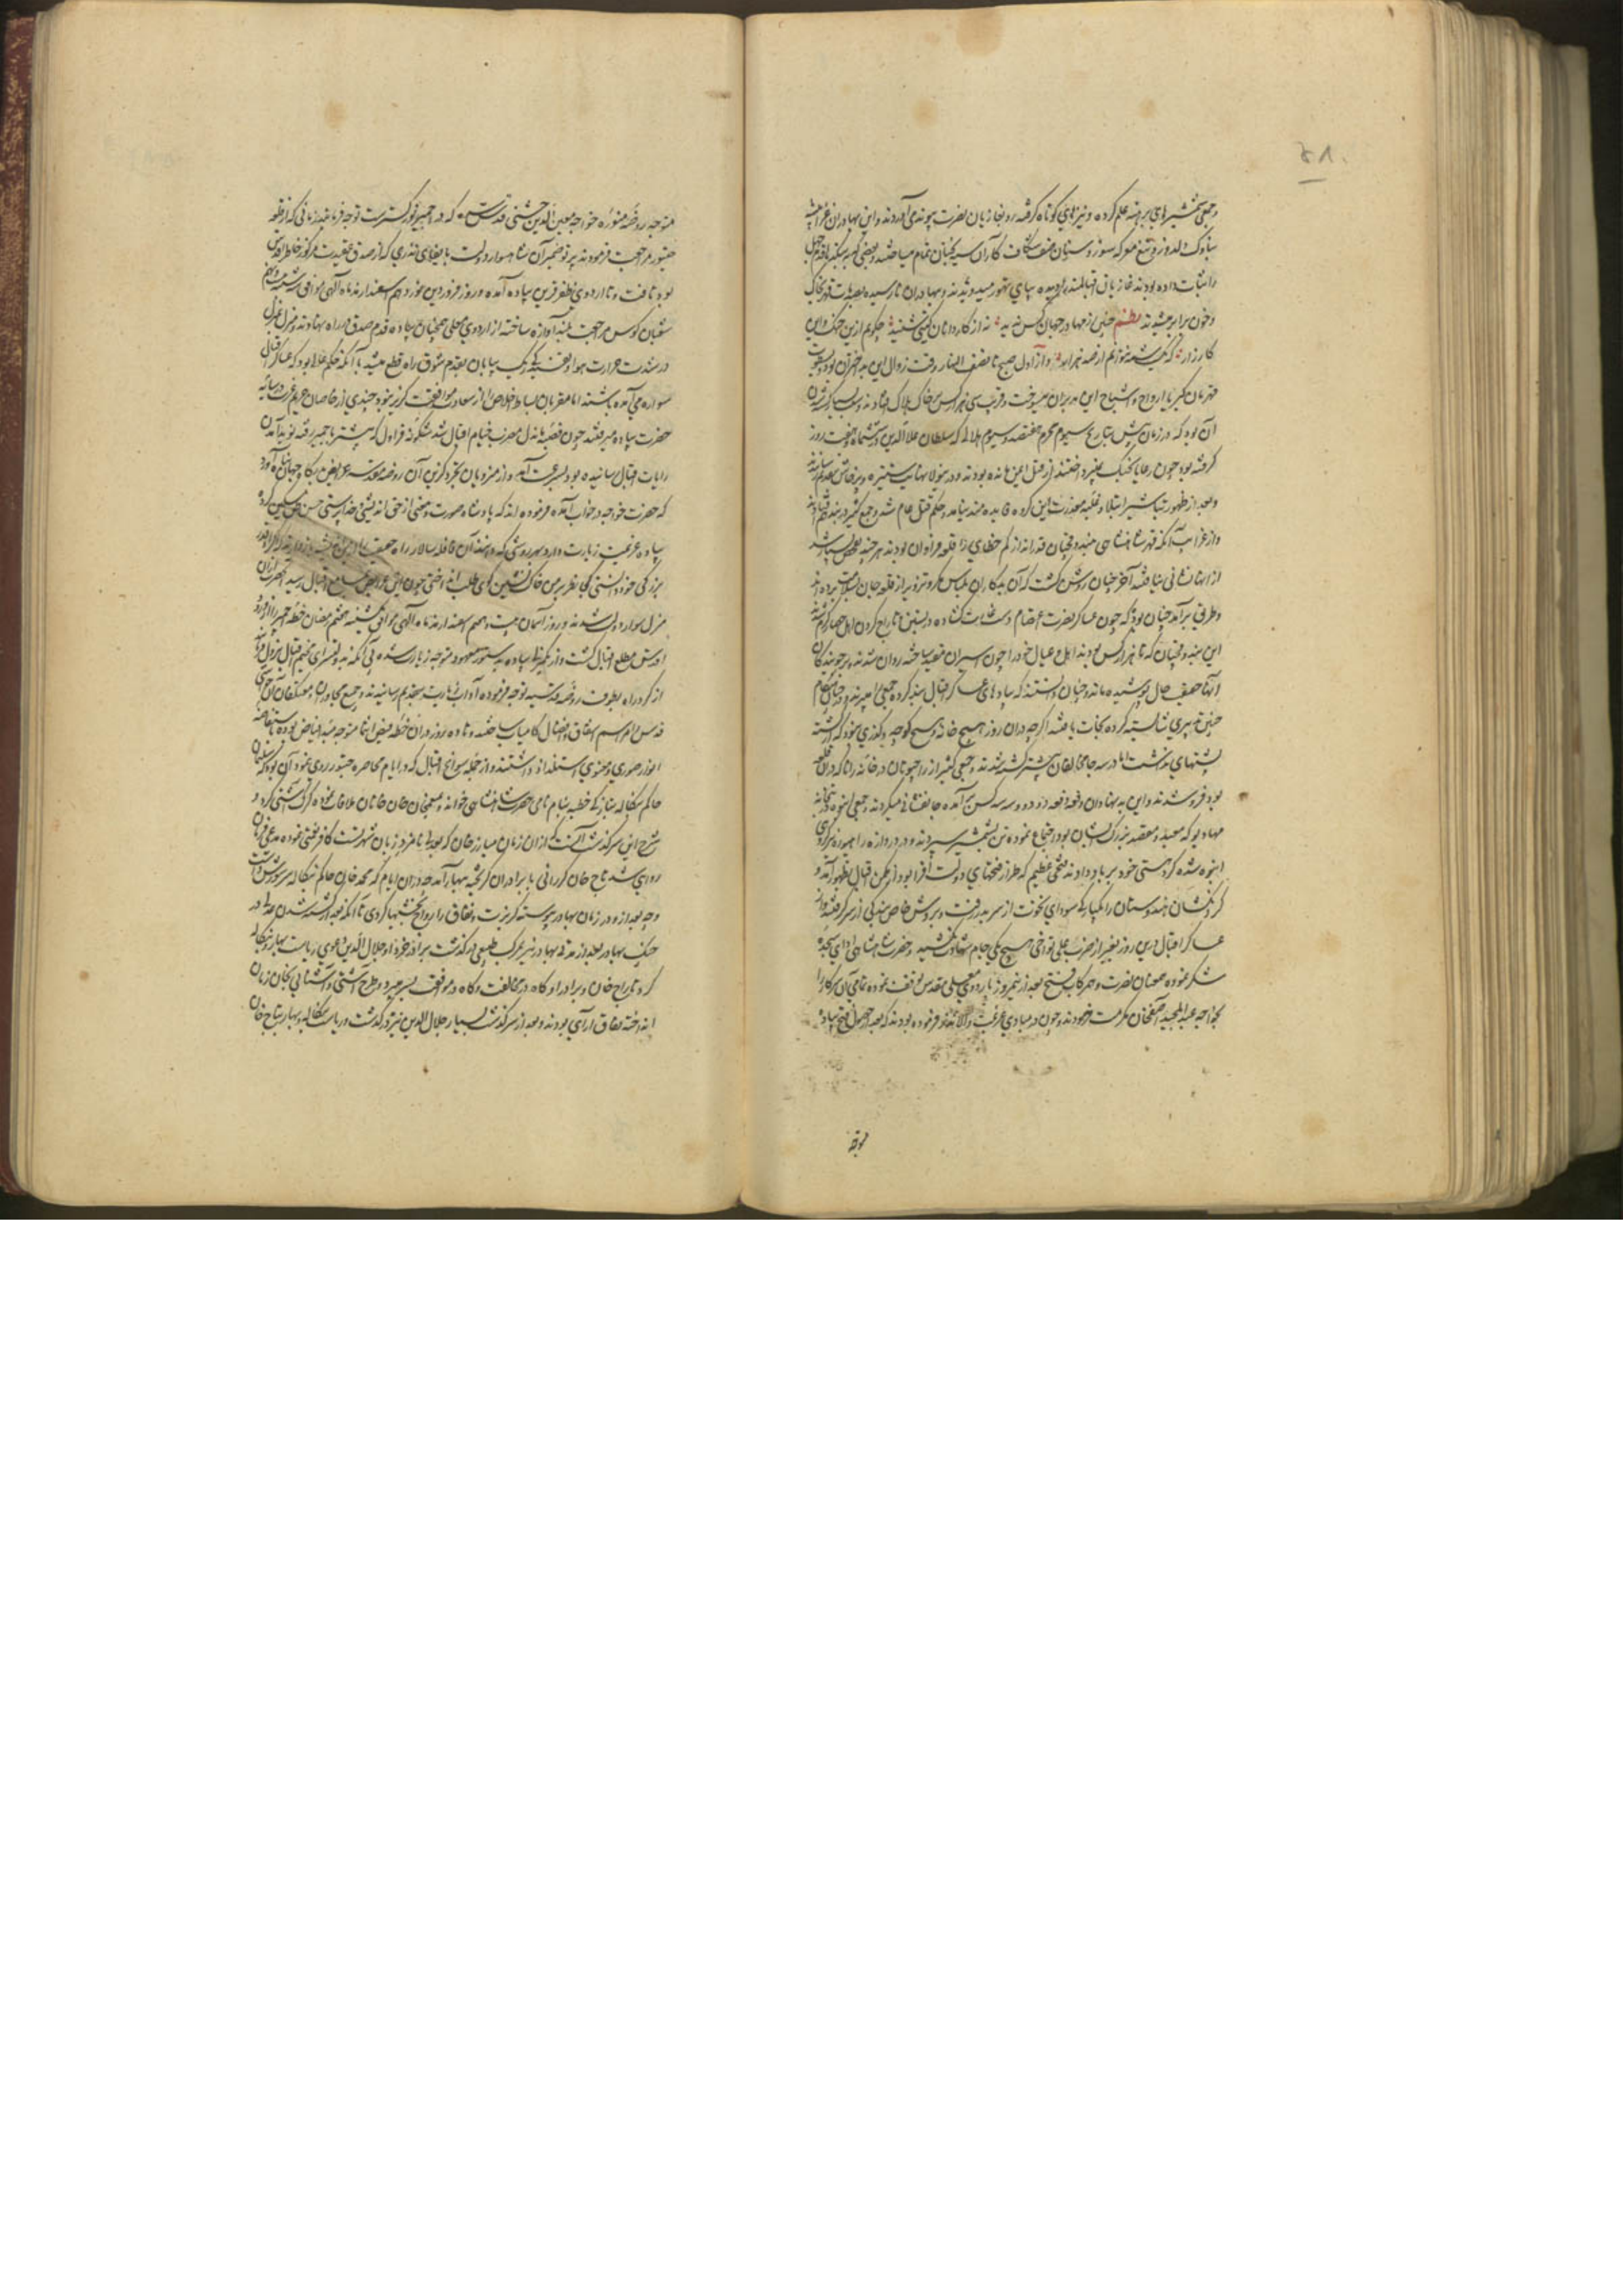 ۴۸۰
و جمعی شمشیرهای برهنه علم کرده و نیزهای کوتاه گرفته رو بغازیان نصرت پیوند می‌آوردند و این بهادران
بناوک دلدوز و تیغ معرکه سوز و سنان صف شکاف کار آن سیه بختان تمام میساختند و بعضی که
را ثبات داده بودند غازیان اقبالمند را دیده بپای تهور میدویدند و بهادران نارسیده
و خون برابر میشدند نظم چنین رزمها در جهان کس ندید نه از کاردانان گیتی شنید چگویم ازین جنگ و این
کارزار که یک شمه نتوانم از صد هزار و از اول صبح تا نصف النهار وقت زوال این بد اختران بود
قهرمان کبریا ارواح و اشباح این مدبران میسوخت و قریب سی هزار کس بر خاک هلاک افتادند و سبب
آن بود که در زمان پیش بتاریخ سیوم محرم هفتصد و سیوم هلالی که سلطان علاءالدین در ششماه و هفت روز
گرفته بود چون رعایا بجنگ نپرداختند از قتل ایمن مانده بودند و درینولا نهایت ستیزه و پرخاش
و بعد از ظهور تباشیر استیلا و غلبه معذرت این گروه فایده مند نیامد و حکم قتل عام شد و جمع کثیر در بند
و از غرایب آنکه قهر شاهنشاهی
از اینها نشانی نیافتند آخر چنان روشن گشت که آن بدکاران بلباس مکر و تزویر از قلعه جان بسلامت برده اند
و طریق برآمد چنان بود که چون عساکر نصرت اعتصام دست غارت گشاده در بستن و تاراج کردن اهل حصار گرم شدند
این بندوقچیان که تا هزار کس بودند اهل و عیال خود را چون اسیران مقید ساخته روان شدند بر جویندگان
اینها حقیقت حال پوشیده ماند و چنان دانستند که پیادهای عساکر اقبال بند کرده جمعی را میبرند
چنین تدبیری شایسته کرده نجات یافتند اگرچه دران روز هیچ خانه و هیچ کوچه و گذری نبود که از کشته
پشتهای نداشت اما در سه جا مخالفان بیشتر کشته شدند جمعی کثیر از راجپوتان در خانه رانا که دران قلعه
بود فرو شدند و این بدنهادان دفعه دفعه دو دو و سه سه کس برآمده جانفشانی میکردند و جمعی انبوه در بتخانه
مهادیو که معبد و معتقد بزرگ ایشان بود اجتماع نموده تن بشمشیر سپردند و در دروازه رامپوره گروهی
انبوه شده گرد هستی خود بر باد دادند فتحی عظیم که طراز فتحهای دولت افزا بود از مکمن اقبال بظهور آمد و
گردنکشان هندوستان را یکبارگی سودای نخوت از سر بدر رفت و بروش خاص بندگی از سر گرفتند و از
عساکر اقبال درین روز بغیر از ضرب علی تواچی هیچ یکی جام شهادت نکشید و حضرت شاهنشاهی ادای سجده
شکر نموده همعنان نصرت و همرکاب فتح بعد از نیمروز باردوی معلی مقدس توقف نموده تمامی آن سرکار را
بخواجه عبدالمجید آصفخان مکرمت فرمودند و چون در مبادی عزیمت والا نذر فرموده بودند که بعد از حصول فتح پیاده
متوجه
متوجه روضه منوره خواجه معین الدین چشتی قدس سره که در اجمیر نورگستر است توجه فرمایند زمانی که از قلعه
چیتور مراجعت فرمودند پرتو ضمیر آن شاهسوار دولت بایفای نذری که از صدق عقیدت مرکوز خاطر اقدس
بود تافت و تا اردوی ظفر قرین پیاده آمده و روز فروردین نوزدهم اسفندارمذ ماه الهی موافق
شعبان کوس مراجعت بلند آوازه ساخته از اردوی معلی همچنان پیاده قدم صدق در راه نهادند و منزل بمنزل
در شدت حرارت هوا و تفسیدگی ریگ بیابان بقدم شوق راه قطع میشد با آنکه حکم معلا بود که عساکر اقبال
سواره می آمده باشند اما مقربان بساط اخلاص را از سعادت موافقت گزیر نبود و چندی از خاصان حریم عزت در سایه
حضرت پیاده میرفتند چون قصبه ماندل مضرب خیام اقبال شد شگونه قراول که پیشتر باجمیر رفته نوید آمدن
رایات اقبال رسانیده بود بسرعت آمد و از منزویان تجرد گزین آن روضه مقدسه عرایض بدرگاه جهان پناه آورد
که حضرت خواجه در خواب آمده فرموده اند که پادشاه صورت و معنی از حق اندیشی و خداپرستی حسن ظن بمن کرده
پیاده عزیمت زیارت دارد بهر روشی که دانند آن قافله سالار راه حقیقت را ازین
بزرگی خود دانستی کی نظر بر من خاک نشین کوی طلب انداختی چون این عرایض بمسامع اقبال رسید آنحضرت ازان
منزل سوار دولت شدند و روز آسمان بیست و هفتم اسفندارمذ ماه الهی موافق یکشنبه هفتم رمضان خطه اجمیر
مطلع اقبال گشت و از یکمنزلی پیاده بدستور معهود متوجه زیارت شدند بی آنکه بدولتسرای مخیم اقبال نزول فرمایند
از گرد راه بطوف روضه قدسیه توجه فرموده آداب زیارت بتقدیم رسانیدند و جمیع مجاوران و معتکفان آن حوالی
قدس را مراسم اشفاق و افضال کامیاب ساختند و تا ده روز دران خطه فیض انتما متوجه مبدأ فیاض بوده
انوار صوری و معنوی استلذاذ داشتند و از جمله سوانح اقبال که در ایام محاصره چیتور روی نمود آن بود که سلیمان
حاکم بنگاله بتازگی خطبه بنام نامی حضرت شاهنشاهی خواند و منعم خان خانخانان ملاقات نموده گرگ آشتی کرد و
شرح این سرگذشت آنست که ازان زمان مبارزخان که بعدلی نامزد زبان شهرتست کافر نعمتی نموده مدعی فرمان
روائی شد تاج خان کررانی با برادران گریخته ببهار آمد و دران ایام که محمد خان حاکم بنگاله سر شورش داشت
چه بعد ازو در زمان بهادر پیوسته گریزت و نفاق را رواج بخشیها کردی تا آنکه بعد از کشته شدن عدلی در
جنگ بهادر بعد از مدتی بهادر نیز بمرگ طبیعی درگذشت برادر خرد او جلال الدین دعوی ریاست بهار و بنگاله
کرد تاج خان و برادر او گاه در مخالفت و گاه در موافقت بسر میبرد و طرح آشتی و آشنائی بخان زمان
انداخته نفاق آرای بودند و بعد از سرگذشت بسیار جلال الدین نیز درگذشت و ریاست بنگاله و بهار بتاج خان